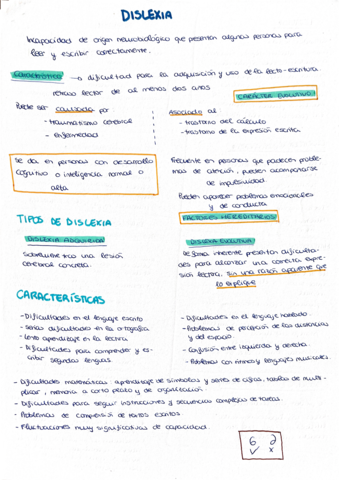 DISLEXIA
Incapacidad de origen neurobiológico que presentan algunas personas para
leer y escribir correctamente.
dificultad para la adquisición y uso de la lecto-escritura
retraso lector de al menos dos años
CARÁCTER EVOLUTIVO
Puede ser causada por:
- traumatismo cerebral
- enfermedad
Asociado al:
- trastorno del cálculo
- trastorno de la expresión escrita
Se da en personas con desarrollo
cognitivo o inteligencia normal o
alta
Frecuente en personas que padecen proble-
mas de atención, pueden acompañarse
de impulsividad
Pueden aparecer problemas emocionales
y de conducta
FACTORES HEREDITARIOS
TIPOS DE DISLEXIA
DISLEXIA ADQUIRIDA
Sobreviene tras una lesión
cerebral concreta.
DISLEXIA EVOLUTIVA
De forma inherente presentan dificulta-
des para alcanzar una correcta expre-
sión lectora, sin una razón aparente que
lo explique
CARACTERÍSTICAS
- Dificultades en el lenguaje escrito
- Serias dificultades en la ortografía
- Lento aprendizaje en la lectura
- Dificultades para comprender y es-
cribir segundas lenguas.
- Dificultades en el lenguaje hablado.
- Problemas de percepción de las distancias
y del espacio.
- Confusión entre izquierda y derecha.
- Problemas con ritmos y lenguajes musicales.
- Dificultades matemáticas: aprendizaje de símbolos y series de cifras, tablas de multi-
plicar, memoria a corto plazo y de organización.
- Dificultades para seguir instrucciones y secuencias complejas de tareas.
- Problemas de comprensión de textos escritos.
- Fluctuaciones muy significativas de capacidad.
6 2
✓ x